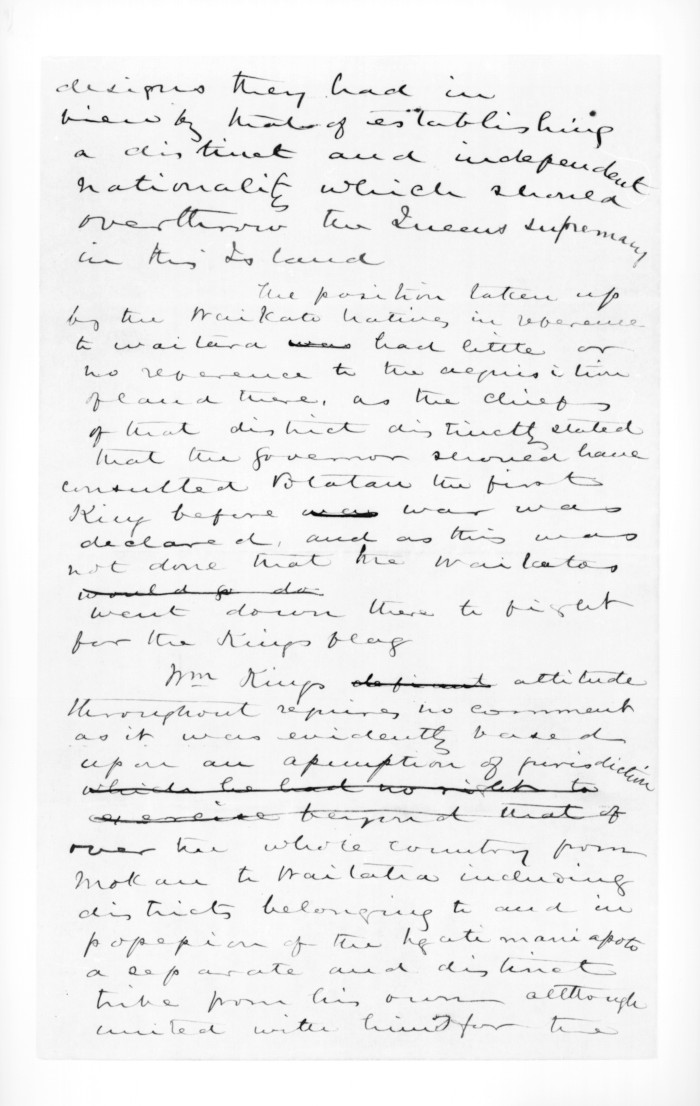 designs they had in
view by that of establishing
a distinct and independent
nationality which should
overthrow the Queens supremacy
in this Island
The position taken up
by the Waikato Natives in reference
to Waitara was had little or
no reference to the acquisition
of land there, as the chiefs
of that district distinctly stated
that the Governor should have
consulted Potatau the first
King before was war was
declared, and as this was
not done that the Waikatos
would go do
went down there to fight
for the Kings flag
Wm Kings defiant attitude
throughout requires no comment
as it was evidently based
upon an assumption of jurisdiction
which he had no right to
exercise beyond that of
over the whole country from
Mokau to Waitara including
districts belonging to and in
possession of the Ngatimaniapoto
a separate and distinct
tribe from his own although
united with him for the